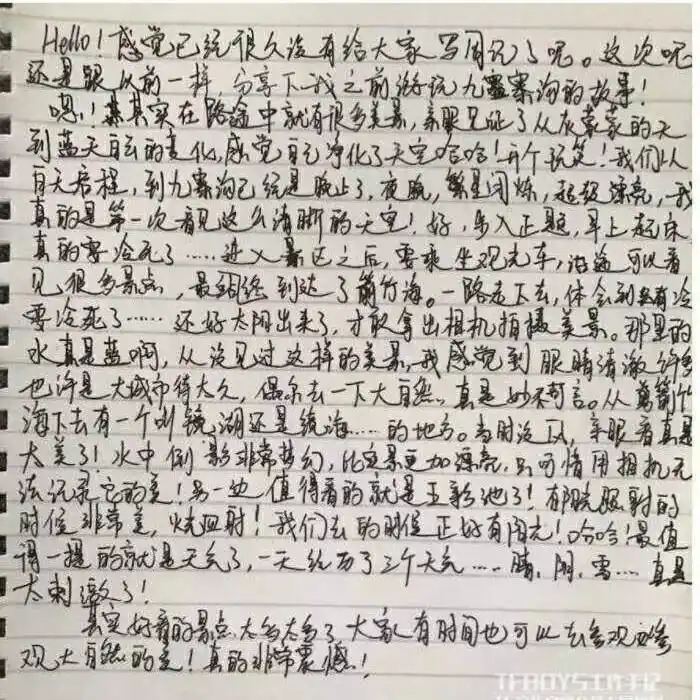 Hello！感觉已经很久没有给大家写周记了呢。这次呢
还是跟以前一样，分享下我之前游玩九寨沟的故事！
嗯！其实在路途中就有很多美景，亲眼见证了从灰蒙蒙的天
到蓝天白云的变化，感觉自己净化了天空哈哈！开个玩笑！我们从
白天启程，到九寨沟已经是晚上了，夜晚，繁星闪烁，超级漂亮，我
真的是第一次看见这么清晰的天空！好，步入正题，早上起床
真的要冷死了……进入景区之后，要乘坐观光车，沿途可以看
见很多景点，最终到达了箭竹海。一路走下去，体会到有冷
要冷死了……还好太阳出来了，才敢拿出相机拍摄美景。那里的
水真是蓝啊，从没见过这样的美景，我感觉到眼睛清澈许多
也许是大城市待太久，偶尔去一下大自然，真是妙不可言。从箭竹
海下去有一个叫镜湖还是镜海……的地方。当时没风，亲眼看真是
太美了！水中倒影非常梦幻，比实景更加漂亮，只可惜用相机无
法记录它的美！另一边值得看的就是五彩池了！有阳光照射的
时候非常美，光四射！我们去的时候正好有阳光！哈哈！最值
得一提的就是天气了，一天经历了三个天气……晴、阴、雪……真是
太刺激了！
其实好看的景点太多太多了，大家有时间也可以去参观参
观大自然的美！真的非常震撼！
TFBOYS工作室